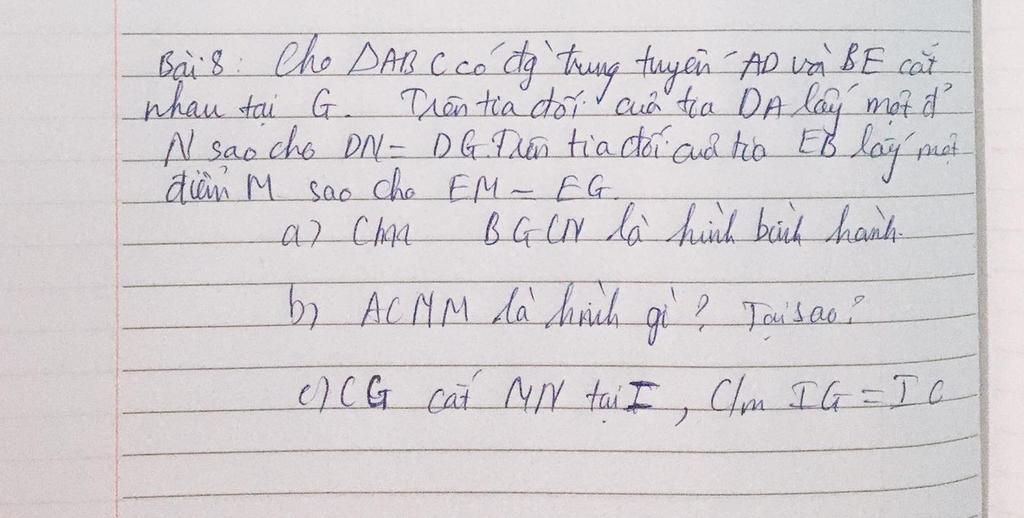 Bài 8: Cho ΔABC có đg trung tuyến AD và BE cắt
nhau tại G. Trên tia đối của tia DA lấy một đ
N sao cho DN = DG. Trên tia đối của tia EB lấy một
điểm M sao cho EM = EG.
a) Cm BGCN là hình bình hành.
b) ACNM là hình gì? Tại sao?
c) CG cắt MN tại I, C/m IG = IC